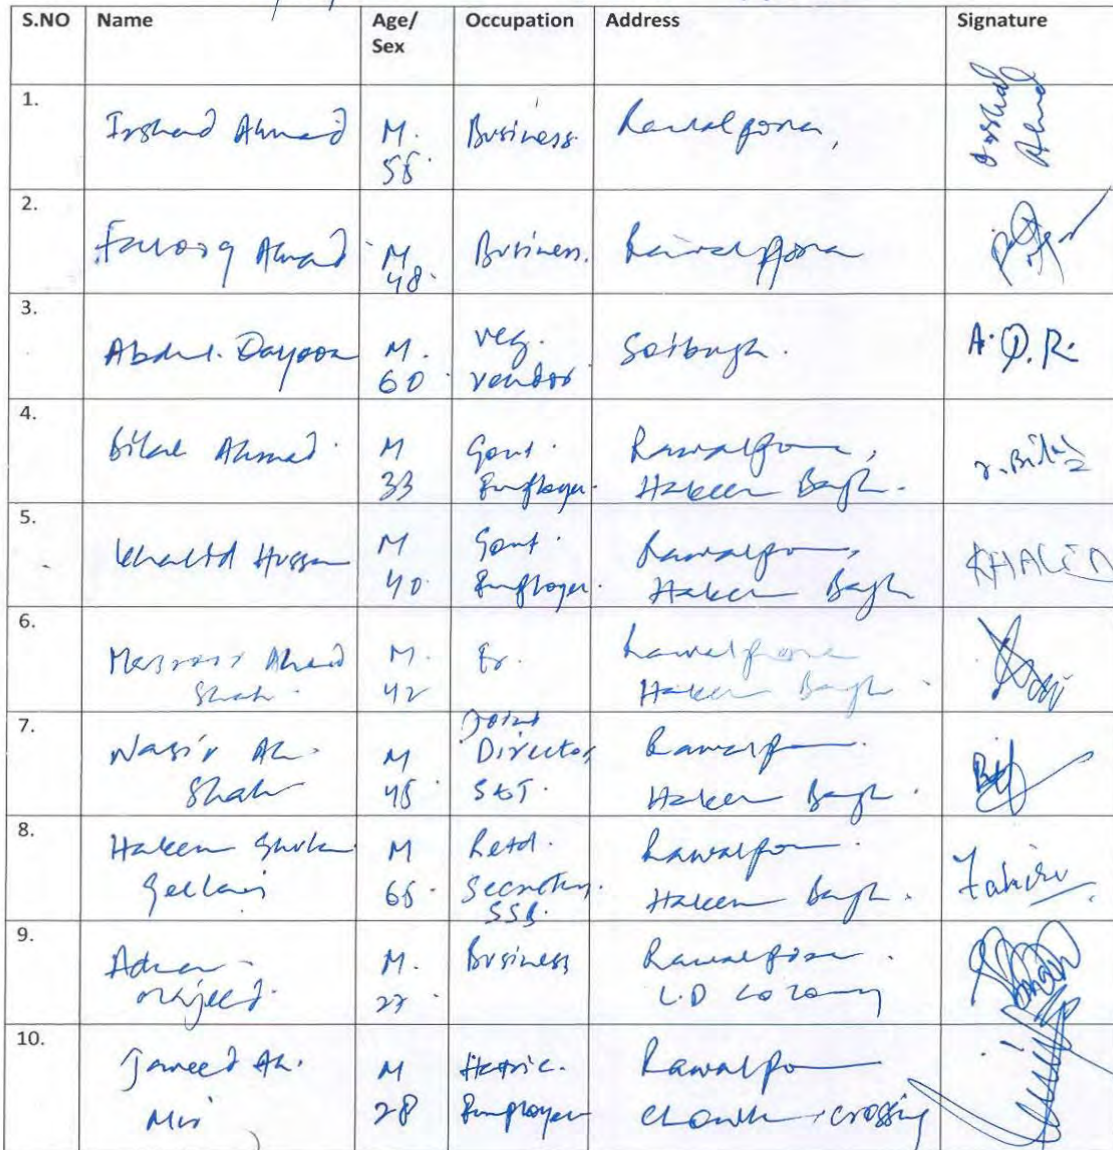 S.NO Name Age/ Sex Occupation Address Signature
1. Irshad Ahmad M. 58. Business. Rawalpora, Irshad Ahmad
2. Farooq Ahmad M 48. Business. Rawalpora
3. Abdul. M. 60. veg. vendor. Soibugh. A. Q. R.
4. Bilal Ahmad. M 33 Govt. Employee. Rawalpora, Hakeem Bagh.
5. Khalid Hussan M 40. Govt. Employee. Rawalpora, Hakeem Bagh KHALID
6. Ahmad Shah. M. 42 Er. Rawalpora Hakeem Bagh.
7. Nasir Ah. Shah M 48 Joint Director, Rawalpora. Hakeem Bagh.
8. Hakeem Ghulam M 68. Retd. Secretary. SSB. Rawalpora. Hakeem Bagh.
9. Adnan Majeed. M. 27. Business Rawalpora. L.D Colony
10. Javeed Ah. Mir M 28 Employee Rawalpora crossing